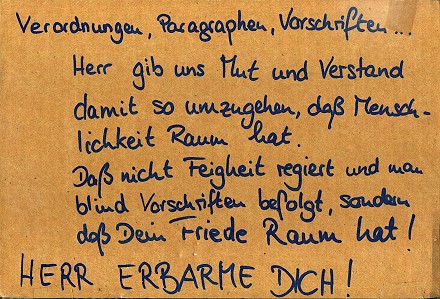 Verordnungen, Paragraphen, Vorschriften...
Herr gib uns Mut und Verstand
damit so umzugehen, daß Mensch-
lichkeit Raum hat.
Daß nicht Feigheit regiert und man
blind Vorschriften befolgt, sondern
daß Dein Friede Raum hat!
HERR ERBARME DICH!